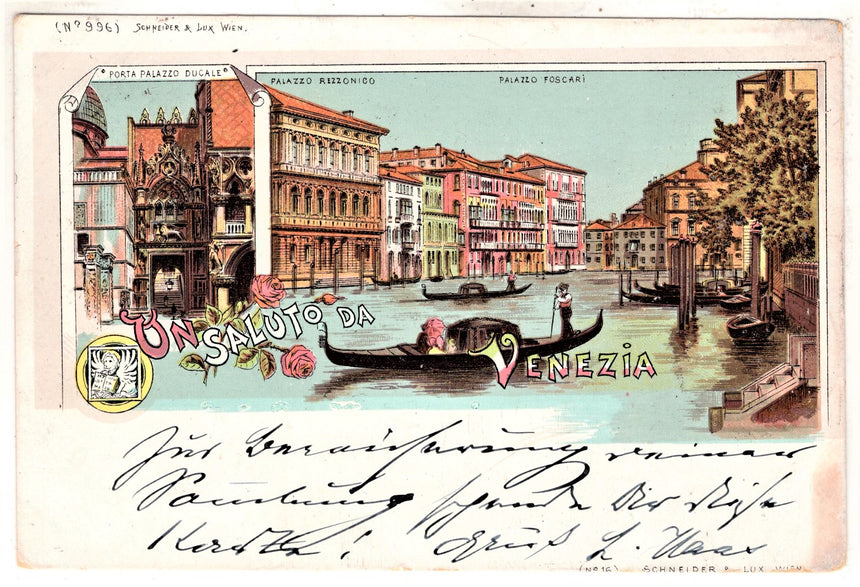 (Nº 996) SCHNEIDER & LUX WIEN.
PORTA PALAZZO DUCALE
PALAZZO REZZONICO
PALAZZO FOSCARI
UN SALUTO DA
VENEZIA
Zur Bereicherung deiner
Sammlung sende Dir diese
Karte! Gruß L. Haas
(Nº 16) SCHNEIDER & LUX WIEN